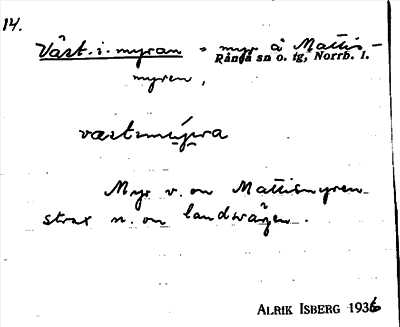 14.
Väst-i-myran = myr å Mattis-
Råneå sn o. tg, Norrb. l.
myren,
væstmy̮ra
Myr v. om Mattismyren
strax n. om landvägen.
ALRIK ISBERG 1936